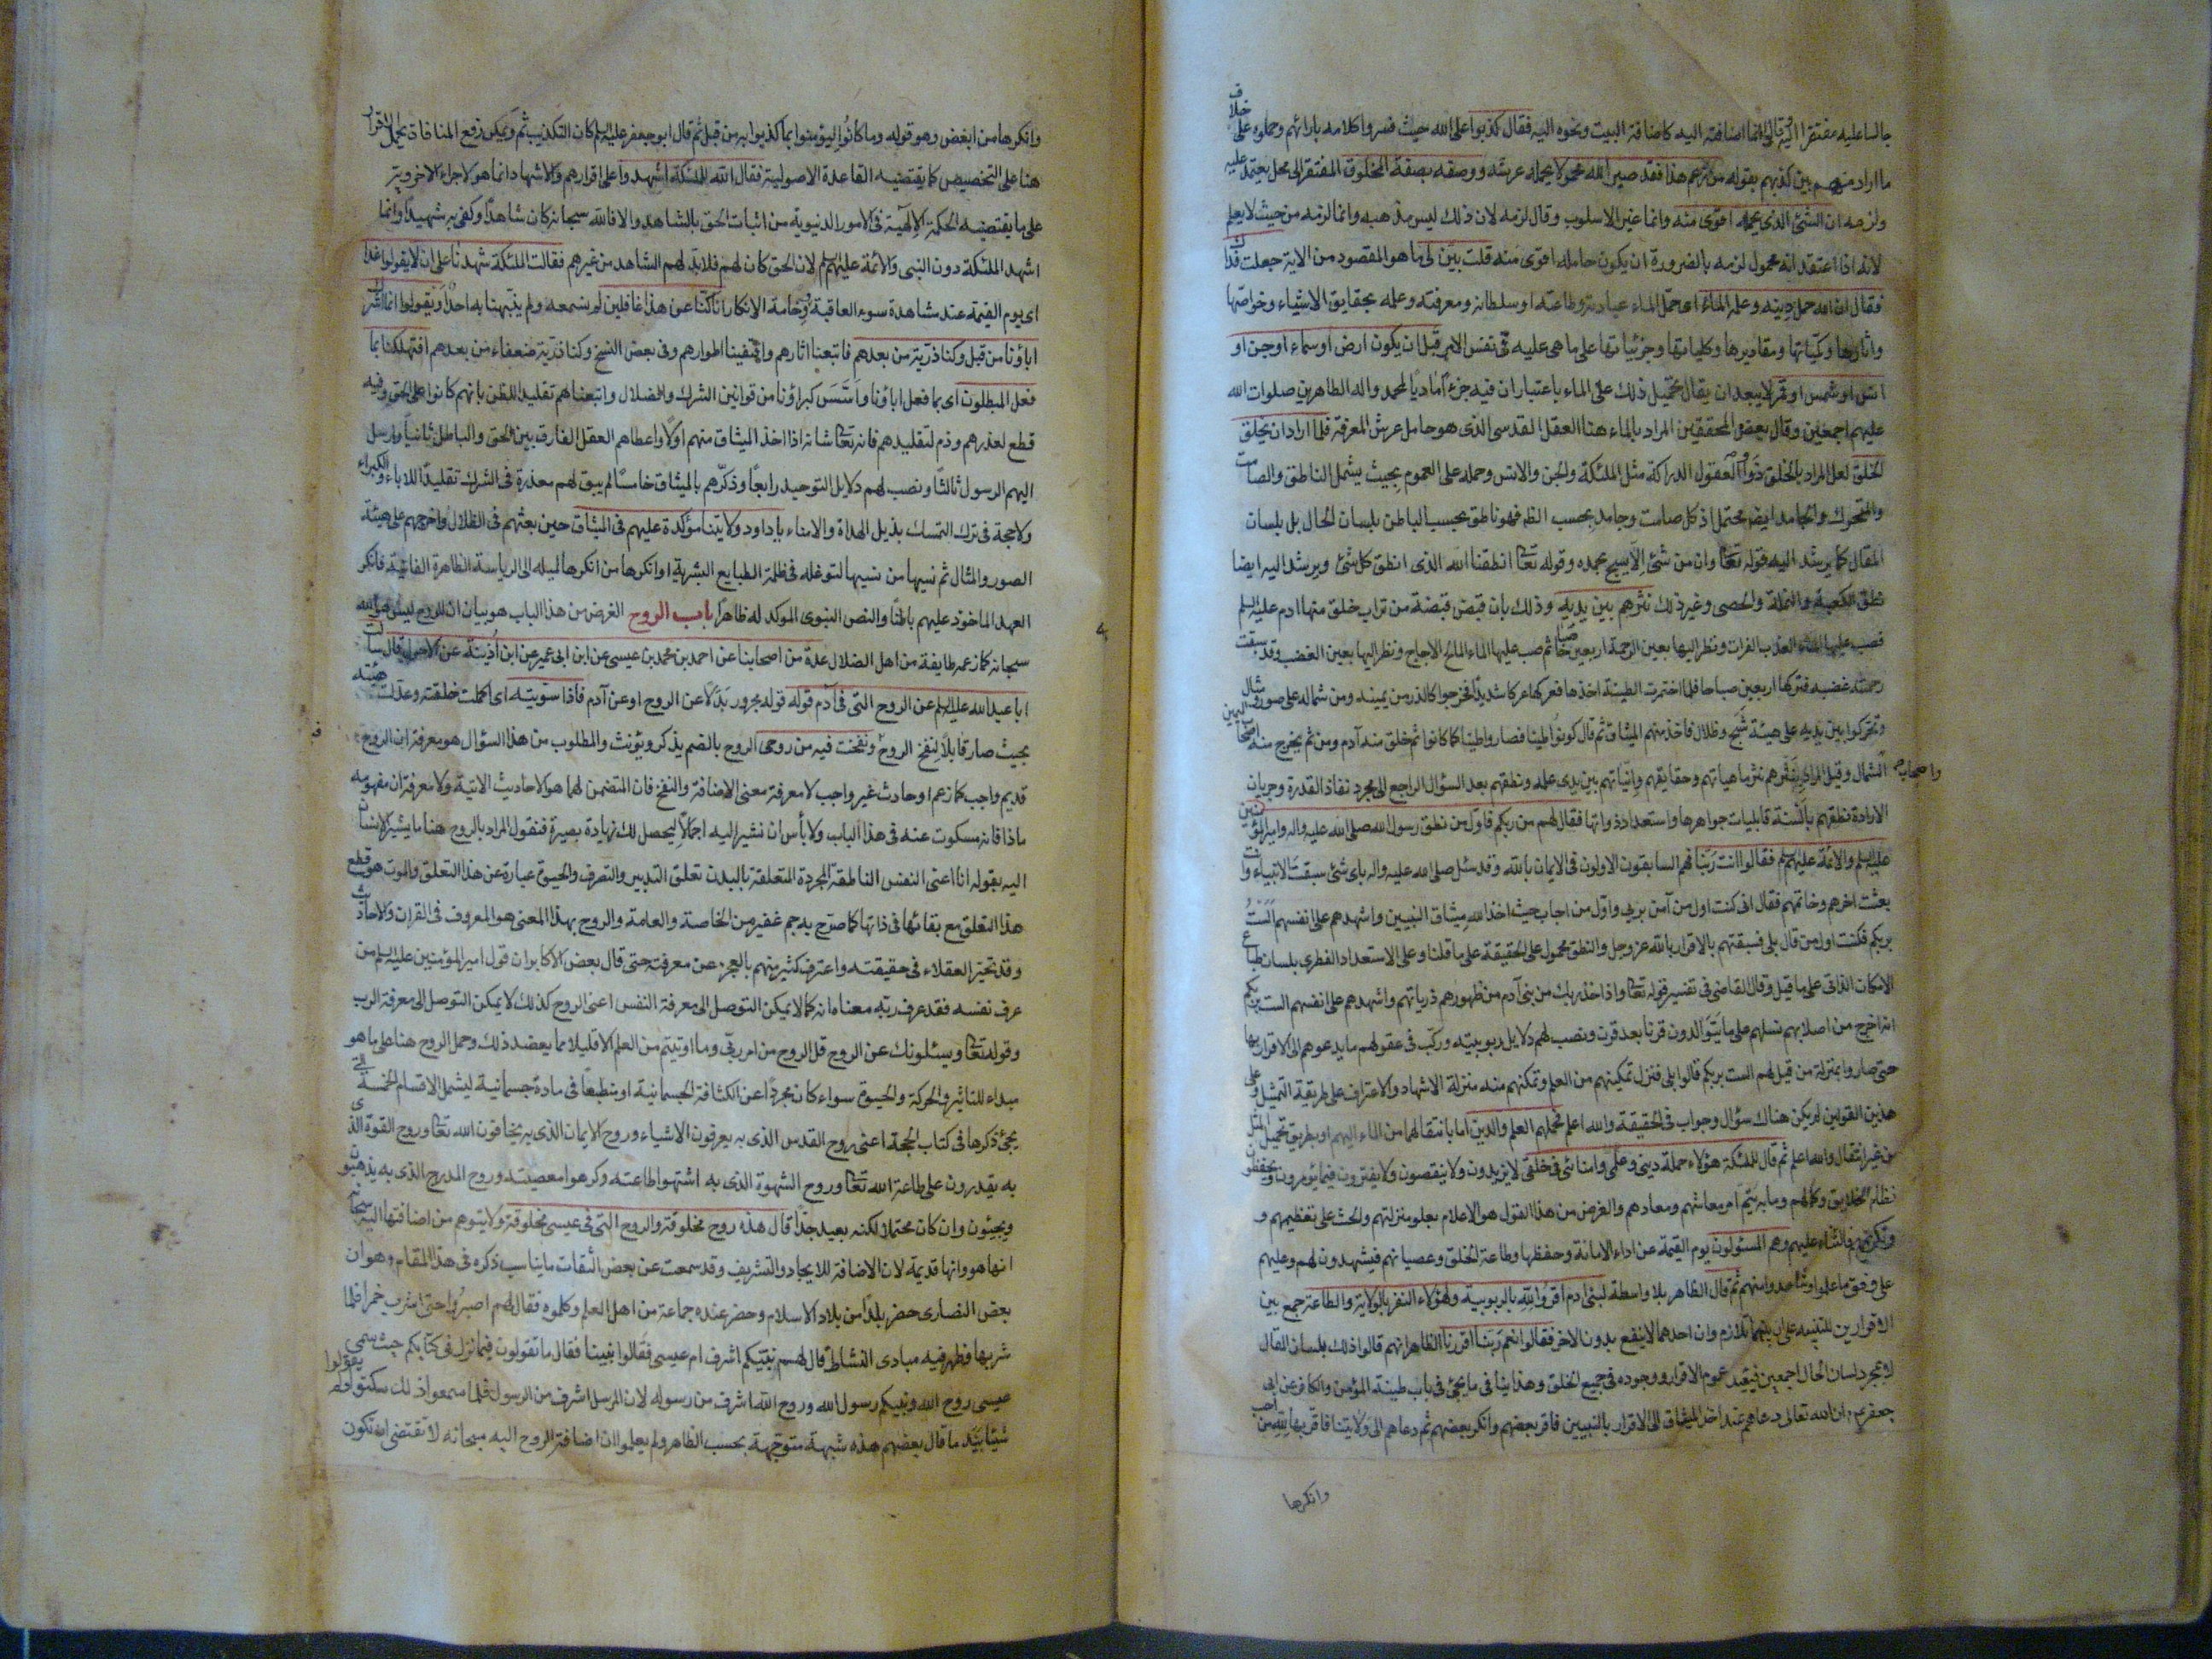 جالسا عليه مفتقرا اليه قال انما اضافته اليه كاضافة البيت ونحوه اليه فقال كذبوا على الله حيث فسروا كلامه بارائهم وحملوه على خلاف
ما اراد منهم بين كذبهم بقوله من زعم هذا فقد صير الله محمولا يحمله عرشه ووصفه بصفة المخلوق المفتقر الى محل يعتمد عليه
ولزمه ان الشئ الذى يحمله اقوى منه وانما غير الاسلوب وقال لزمه لان ذلك ليس مذهبه وانما لزمه من حيث لا يعلم
لانه اذا اعتقد انه محمول لزمه بالضرورة ان يكون حامله اقوى منه قلت بين لى ما هو المقصود من الاية جعلت فداك
فقال ان الله حمل دينه وعلمه الماء اى حمل الماء عبادته وطاعته او سلطانه ومعرفته وعلمه بحقايق الاشياء وخواصها
واثارها وكيفياتها ومقاديرها وكلياتها وجزئياتها على ما هى عليه فى نفس الامر قبل ان يكون ارض او سماء او جن او
انس او شمس او قمر لا يبعد ان يقال تحميل ذلك على الماء باعتبار ان فيه جزءا ماديا لمحمد واله الطاهرين صلوات الله
عليهم اجمعين وقال بعض المحققين المراد بالماء هنا العقل القدسى الذى هو حامل عرش المعرفة فلما اراد ان يخلق
الخلق لعل المراد بالخلق ذوو العقول الدراكة مثل الملئكة والجن والانس وحمله على العموم بحيث يشمل الناطق والصامت
والمتحرك والجامد ايضا محتمل اذ كل صامت وجامد بحسب الظ فهو ناطق بحسب الباطن بلسان الحال بل بلسان
المقال كما يرشد اليه قوله تعا وان من شئ الا يسبح بحمده وقوله تعا انطقنا الله الذى انطق كل شئ ويرشد اليه ايضا
نطق الكعبة والنملة والحصى وغير ذلك نثرهم بين يديه وذلك بان قبض قبضة من تراب خلق منها ادم عليه السلم
فصب عليها الماء العذب الفرات ونظر اليها بعين الرحمة اربعين صباحا ثم صب عليها الماء المالح الاجاج ونظر اليها بعين الغضب وقد سبقت
رحمته غضبه فتركها اربعين صباحا فلما اختمرت الطينة اخذها فعركها عركا شديدا فخرجوا كالذر من يمينه ومن شماله على صور مثال
وتحركوا بين يديه على هيئة شبح وظلال فاخذ منهم الميثاق ثم قال كونوا طينا فصاروا طينا كما كانوا ثم خلق منه آدم ومن ثم يخرج منه اصحاب اليمين
واصحاب الشمال وقيل المراد بنثرهم نثر ماهياتهم وحقايقهم وانياتهم بين يدى علمه ونطقهم بعد السؤال الراجع الى مجرد نفاذ القدرة وجريان
الارادة نطقهم بالسنة قابليات جواهرها واستعداد ذواتها فقال لهم من ربكم فاول من نطق رسول الله صلى الله عليه واله وامير المؤمنين
عليه السلم والائمة عليهم السلم فقالوا انت ربنا فهم السابقون الاولون فى الايمان بالله وقد سئل صلى الله عليه واله باى شئ سبقت الانبياء وانت
بعثت اخرهم وخاتمهم فقال انى كنت اول من آمن بربى واول من اجاب حيث اخذ الله ميثاق النبيين واشهدهم على انفسهم الست
بربكم فكنت اول من قال بلى فسبقتهم بالاقرار بالله عز وجل والنطق محمول على الحقيقة على ما قلنا وعلى الاستعداد الفطرى بلسان طباع
الامكان الذاتى على ما قيل وقال القاضى فى تفسير قوله تعا واذ اخذ ربك من بنى آدم من ظهورهم ذرياتهم واشهدهم على انفسهم الست بربكم
انه اخرج من اصلابهم نسلهم على ما يتوالدون قرنا بعد قرن ونصب لهم دلايل ربوبيته وركب فى عقولهم ما يدعوهم الى الاقرار بها
حتى صاروا بمنزلة من قيل لهم الست بربكم قالوا بلى فنزل تمكينهم من العلم وتمكنهم منه منزلة الاشهاد والاعتراف على طريقة التمثيل وعلى
هذين القولين لم يكن هناك سؤال وجواب فى الحقيقة والله اعلم فحملهم العلم والدين اما بانتقالهما من الماء اليهم او بطريق تحميل المثل
من غير انتقال والله اعلم ثم قال للملئكة هؤلاء حملة دينى وعلمى وامنائى فى خلقى لا يزيدون ولا ينقصون ولا يفترون فيما يؤمرون ويحفظون
نظام الخلايق وكمالهم وما به يتم امر معاشهم ومعادهم والغرض من هذا القول هو الاعلام بعلو منزلتهم والحث على تعظيمهم و
وتكريمهم والثناء عليهم وهم المسئولون يوم القيمة عن اداء الامانة وحفظها وطاعة الخلق وعصيانهم فيشهدون لهم وعليهم
على وفق ما علموا وشاهدوا منهم ثم قال الظاهر بلا واسطة لبنى ادم اقروا لله بالربوبية ولهؤلاء النفر بالولاية والطاعة جمع بين
الاقرارين للتنبيه على ان بينهما تلازم وان احدهما لا ينفع بدون الاخر فقالوا نعم ربنا اقررنا الظاهر انهم قالوا ذلك بلسان المقال
لا بمجرد لسان الحال اجمعين فيفيد عموم الاقرار ووجوده فى جميع الخلق وهذا ينافى ما يجئ فى باب طينة المؤمن والكافر عن ابى
جعفر ع ان الله تعالى دعاهم عند اخذ الميثاق الى الاقرار بالنبيين فاقر بعضهم وانكر بعضهم ثم دعاهم الى ولايتنا فاقر بها لله من احب
وانكرها
وانكرها من ابغض وهو قوله وما كانوا ليؤمنوا بما كذبوا به من قبل ثم قال ابو جعفر عليه السلم كان التكذيب ثم ويمكن دفع المنافاة بحمل الاقرار
هنا على التخصيص كما يقتضيه القاعدة الاصولية فقال الله للملئكة اشهدوا على اقرارهم والاشهاد انما هو لاجراء الاخروية
على ما يقتضيه الحكمة الالهية فى الامور الدنيوية من اثبات الحق بالشاهد والا فالله سبحانه كان شاهدا وكفى به شهيدا وانما
اشهد الملئكة دون النبى والائمة عليهم السلم لان الحق كان لهم فلابد لهم الشاهد من غيرهم فقالت الملئكة شهدنا على ان لا يقولوا غدا
اى يوم القيمة عند مشاهدة سوء العاقبة وخامة الانكار انا كنا عن هذا غافلين لم نسمعه ولم ينبهنا به احد او يقولوا انما اشرك
اباؤنا من قبل وكنا ذرية من بعدهم فاتبعنا اثارهم واقتفينا اطوارهم وفى بعض النسخ وكنا ذرية ضعفاء من بعدهم افتهلكنا بما
فعل المبطلون اى بما فعل اباؤنا واسس كبراؤنا من قوانين الشرك والضلال واتبعناهم تقليدا للظن بانهم كانوا على الحق وفيه
قطع لعذرهم وذم لتقليدهم فانه تعا شانه اذا اخذ الميثاق منهم اولا واعطاهم العقل الفارق بين الحق والباطل ثانيا وارسل
اليهم الرسول ثالثا ونصب لهم دلايل التوحيد رابعا وذكرهم بالميثاق خامسا لم يبق لهم معذرة فى الشرك تقليدا للاباء والكبراء
ولا حجة فى ترك التمسك بذيل الهداة والامناء يا داود ولايتنا مؤكدة عليهم فى الميثاق حين بعثهم فى الظلال واخرجهم على هيئة
الصور والمثال ثم نسيها من نسيها لتوغله فى ظلمة الطبايع البشرية او انكرها من انكرها لميله الى الرياسة الظاهرة الفانية فانكر
العهد الماخوذ عليهم باطنا والنص النبوى الموكد له ظاهرا باب الروح الغرض من هذا الباب هو بيان ان الروح ليس هو الله
سبحانه كما زعمه طايفة من اهل الضلال عدة من اصحابنا عن احمد بن محمد بن عيسى عن ابن ابى عمير عن ابن أذينة عن الاحول قال سالت
ابا عبد الله عليه السلم عن الروح التى فى آدم قوله قوله مجرور بدلا عن الروح او عن آدم فاذا سويته اى اكملت خلقته وعدلت هيئته
بحيث صار قابلا لنفخ الروح ونفخت فيه من روحى الروح بالضم يذكر ويؤنث والمطلوب من هذا السؤال هو معرفة ان الروح
قديم واجب كما زعم او حادث غير واجب لا معرفة معنى الاضافة والنفخ فان المتضمن لهما هو الاحاديث الاتية ولا معرفة ان مفهومه
ماذا فانه مسكوت عنه فى هذا الباب ولا بأس ان نشير اليه اجمالا ليحصل لك زيادة بصيرة فنقول المراد بالروح هنا ما يشير الانسان
اليه بقوله انا اعنى النفس الناطقة المجردة المتعلقة بالبدن تعلق التدبير والتصرف والحيوة عبارة عن هذا التعلق والموت هو قطع
هذا التعلق مع بقائها فى ذاتها كما صرح به جم غفير من الخاصة والعامة والروح بهذا المعنى هو المعروف فى القران والاحاديث
وقد تحير العقلاء فى حقيقته واعترف كثير منهم بالعجز عن معرفته حتى قال بعض الاكابر ان قول امير المؤمنين عليه السلم من
عرف نفسه فقد عرف ربه معناه انه كما لا يمكن التوصل الى معرفة النفس اعنى الروح كذلك لا يمكن التوصل الى معرفة الرب
وقوله تعا ويسئلونك عن الروح قل الروح من امر ربى وما اوتيتم من العلم الا قليلا مما يعضد ذلك وحمل الروح هنا على ما هو
مبداء للتاثير والحركة والحيوة سواء كان مجردا عن الكثافة الجسمانية او منطبعا فى مادة جسمانية ليشمل الاقسام الخمسة التى
يجئ ذكرها فى كتاب الحجة اعنى روح القدس الذى به يعرفون الاشياء وروح الايمان الذى به يخافون الله تعا وروح القوة الذى
به يقدرون على طاعة الله تعا وروح الشهوة الذى به اشتهوا طاعته وكرهوا معصيته وروح المدرج الذى به يذهبون
ويجيئون وان كان محتملا لكنه بعيد جدا قال هذه روح مخلوقة والروح التى فى عيسى مخلوقة ولا يتوهم من اضافتها اليه سبحانه
انها هو وانها قديمة لان الاضافة للايجاد والتشريف وقد سمعت عن بعض الثقات ما يناسب ذكره فى هذا المقام وهو ان
بعض النصارى حضر بلدا من بلاد الاسلام وحضر عنده جماعة من اهل العلم وكلموه فقال لهم اصبروا حتى اشرب خمرا فلما
شربها فظهر فيه مبادى النشاط قال لهم نبيكم اشرف ام عيسى فقالوا نبينا فقال ما تقولون فيما نزل فى كتابكم حيث سمى
عيسى روح الله ونبيكم رسول الله وروح الله اشرف من رسوله لان المرسل اشرف من الرسول فلما سمعوا ذلك سكتوا ولم يقولوا
شيئا بيد ما قال بعضهم هذه شبهة متوجهة بحسب الظاهر ولم يعلموا ان اضافة الروح اليه سبحانه لا تقتضى ان تكون